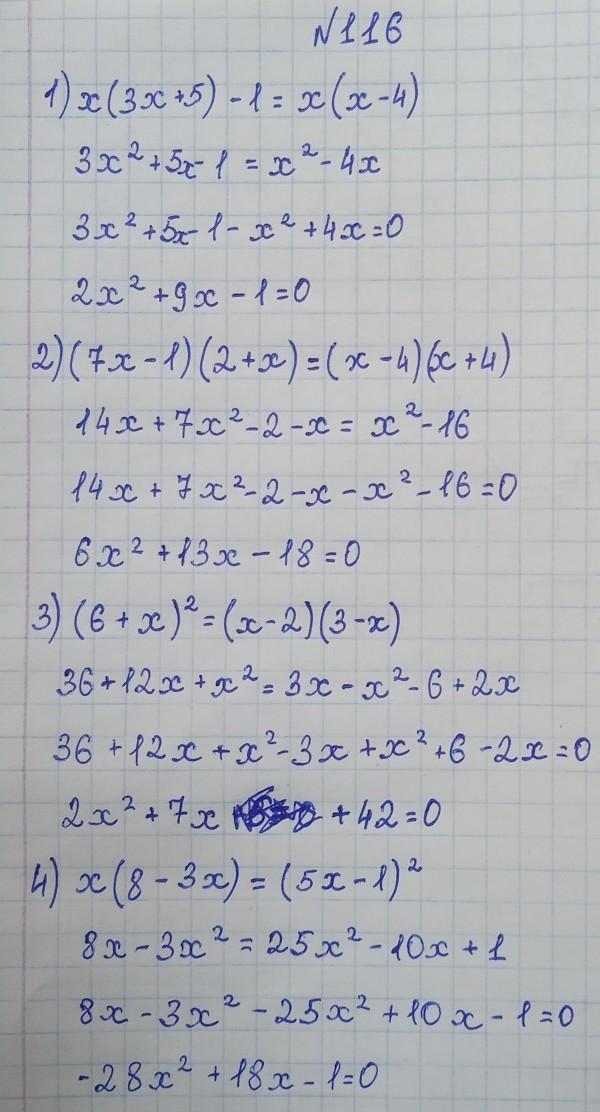 №116
1) x(3x+5) - 1 = x(x-4)
3x² + 5x - 1 = x² - 4x
3x² + 5x - 1 - x² + 4x = 0
2x² + 9x - 1 = 0
2) (7x - 1)(2+x) = (x-4)(x+4)
14x + 7x² - 2 - x = x² - 16
14x + 7x² - 2 - x - x² - 16 = 0
6x² + 13x - 18 = 0
3) (6 + x)² = (x-2)(3-x)
36 + 12x + x² = 3x - x² - 6 + 2x
36 + 12x + x² - 3x + x² + 6 - 2x = 0
2x² + 7x + 42 = 0
4) x(8 - 3x) = (5x - 1)²
8x - 3x² = 25x² - 10x + 1
8x - 3x² - 25x² + 10x - 1 = 0
-28x² + 18x - 1 = 0